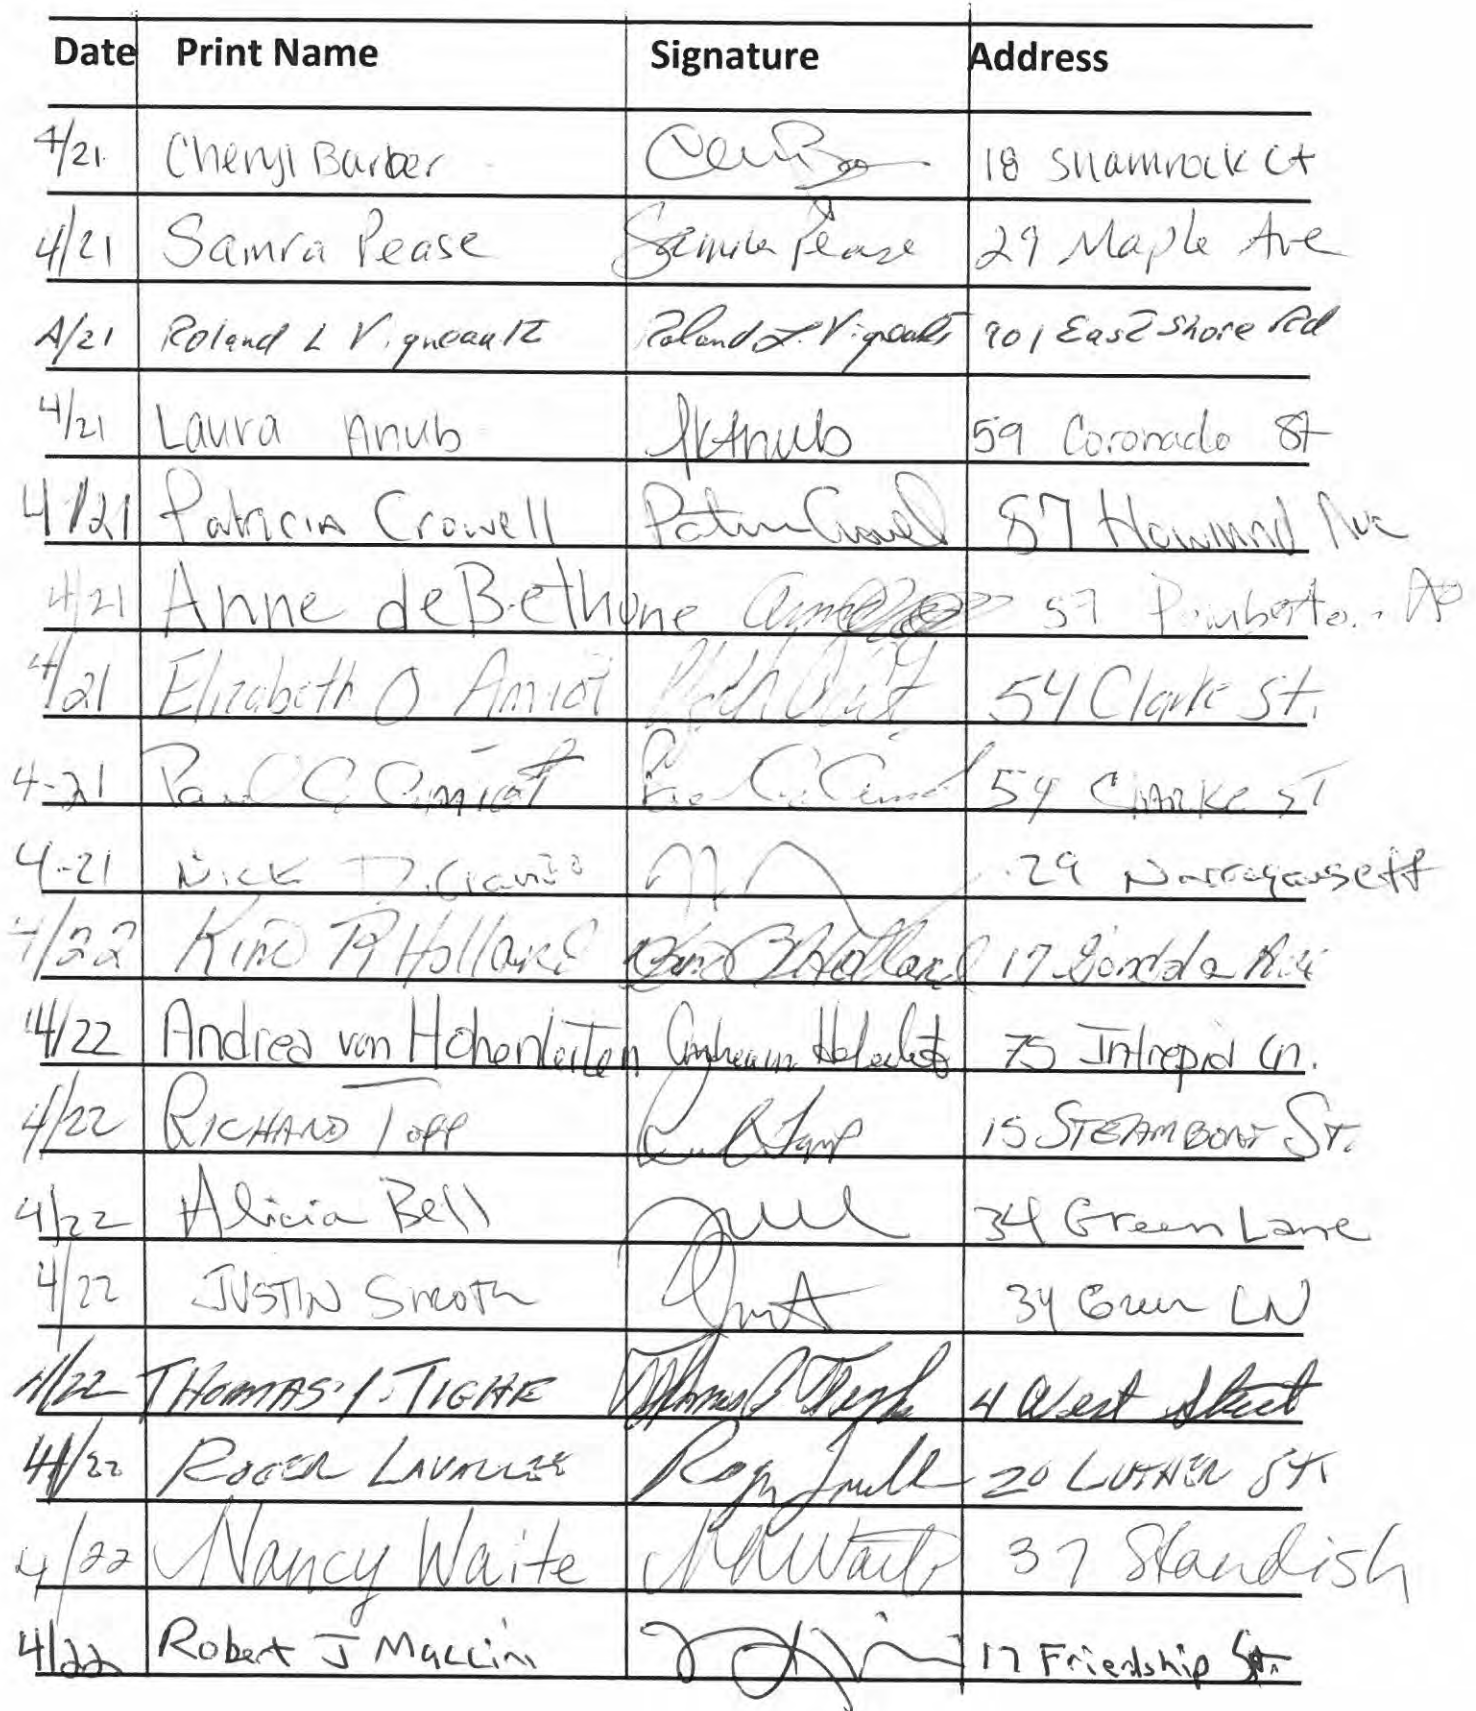 Date Print Name Signature Address
4/21 Cheryl Barber 18 Shamrock Ct
4/21 Samra Pease Samra Pease 29 Maple Ave
4/21 Roland L Vigneault Roland L. Vigneault 901 East Shore Rd
4/21 Laura Anub Anub 59 Coronado St
4/21 Patricia Crowell 87 Howland Ave
4/21 Anne deBethune 57
4/21 Elizabeth O Amiot 54 Clarke St.
4-21 Paul C Amiot 54 Clarke ST
4-21 Nick 29 Narragansett
4/22 Kim Holland Holland 17 Gondola Ave
4/22 Andrea von Hohenleiten 75 Intrepid Ln.
4/22 RICHARD TOPP 15 STEAMBOAT ST.
4/22 Alicia Bell 34 Green Lane
4/22 JUSTIN Smoth 34 Green LN
4/22 THOMAS J. TIGHE 4 West Street
4/22 ROGER LAVALLEE 20 LUTHER St.
4/22 Nancy Waite Waite 37 Standish
4/22 Robert J Maccini 17 Friendship St.